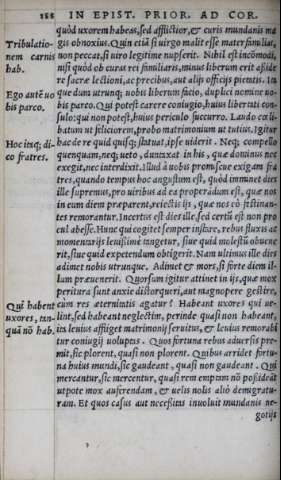 188 IN EPIST. PRIOR. AD COR.
quòd uxorem habeas, sed afflictior, & curis mundanis ma
Tribulatio-
nem carnis
hab.
gis obnoxius. Quin etiã si uirgo malit esse materfamiliâs,
non peccat, si uiro legitime nupserit. Nihil est incõmodi,
nisi quòd ob curas rei familiaris, minus liberum erit aßide
re sacræ lectioni, ac precibus, aut alijs officijs pietatis. In
Ego autẽ uo
bis parco.
que dum utrunq; uobis liberum facio, duplici nomine uo-
bis parco. Qui potest carere coniugio, huius libertati con-
sulo: qui non potest, huius periculo succurro. Laudo cœli-
batum ut feliciorem, probo matrimonium ut tutius. Igitur
Hoc itaq; di-
co fratres.
hac de re quid quisq; statuat, ipse uiderit. Neq; compello
quenquam, neq; ueto, duntaxat in his, quæ dominus nec
exegit, nec interdixit. Illud à uobis promiscue exigam fra
tres, quando tempus hoc angustum est, quòd imminet dies
ille supremus, pro uiribus ad ea properandum est, quæ nos
in eum diem præparent, reiectis ijs, quæ nos eò festinan-
tes remorantur. Incertus est dies ille, sed certũ est non pro
cul abesse. Hunc qui cogitet semper instare, rebus fluxis ac
momentarijs leuißime tangetur, siue quid molestũ obuene
rit, siue quid expetendum obtigerit. Nam ultimus ille dies
adimet nobis utrunque. Adimet & mors, si forte diem il-
lum præuenerit. Quorsum igitur attinet in ijs, quæ mox
peritura sunt anxie distorqueri, aut magnopere gestire,
Qui habent
uxores, tan-
quã nõ hab.
cum res æternitatis agatur? Habeant uxores qui ue-
lint, sed habeant neglectim, perinde quasi non habeant,
ita leuius affliget matrimonij seruitus, & leuius remorabi
tur coniugij uoluptas. Quos fortuna rebus aduersis pre-
mit, sic plorent, quasi non plorent. Quibus arridet fortu-
na huius mundi, sic gaudeant, quasi non gaudeant. Qui
mercantur, sic mercentur, quasi rem emptam nõ poßideãt
utpote mox auferendam, & uelis nolis aliò demigratu-
ram. Et quos casus aut necessitas inuoluit mundanis ne-
gotijs